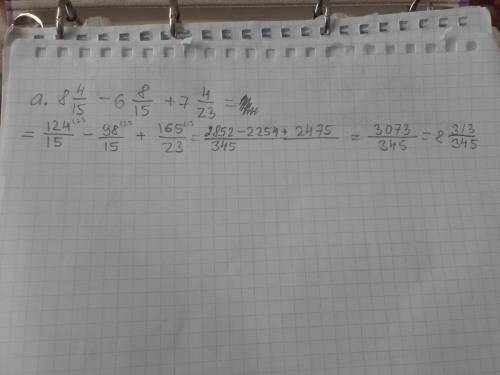 a. 8 4/15 - 6 8/15 + 7 4/23 =
= 124/15 - 98/15 + 165/23 = 2852 - 2254 + 2475/345 = 3073/345 = 8 313/345